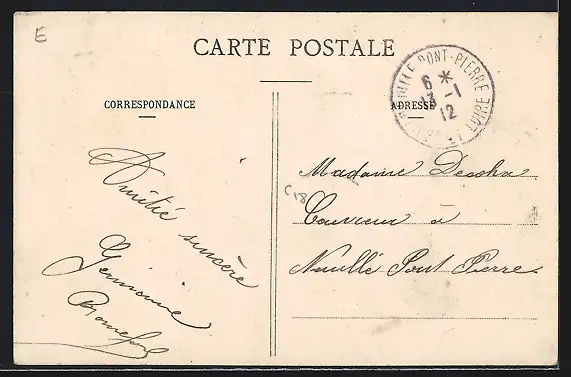 E
CARTE POSTALE
CORRESPONDANCE
ADRESSE
NEUILLÉ PONT-PIERRE
6 *
13 - 1
12
LOIRE
Amitié sincère
Germaine
C18
Madame
à
Neuillé Pont Pierre